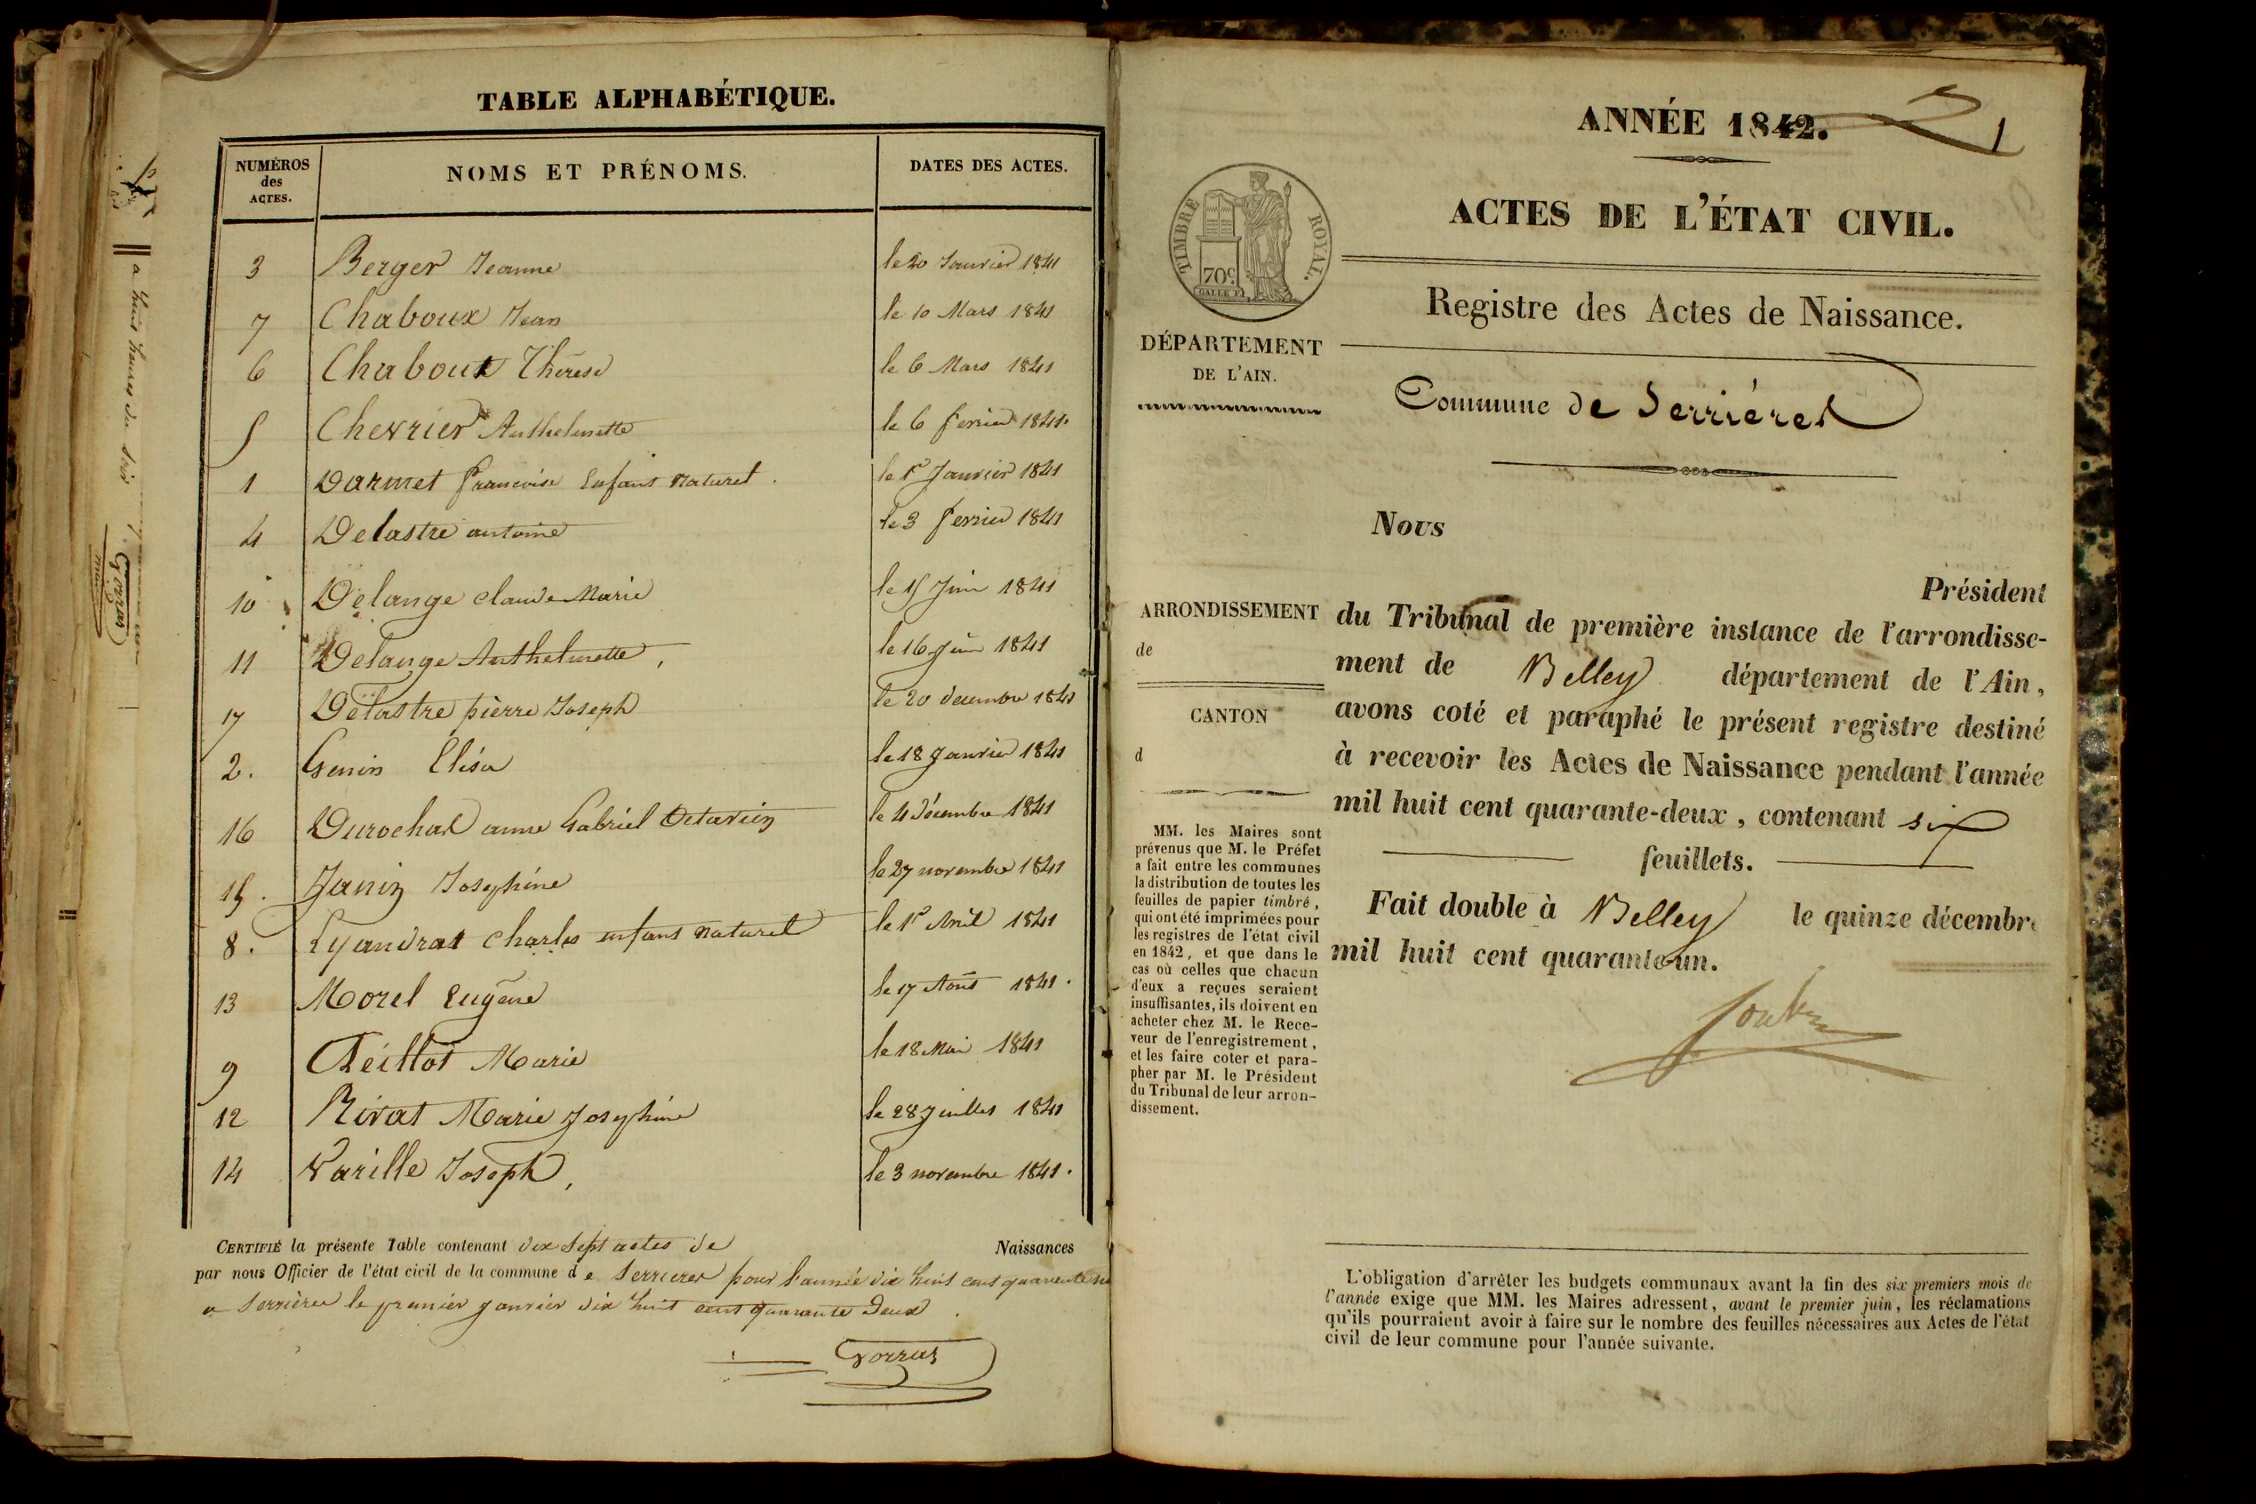 TABLE ALPHABÉTIQUE.
NUMÉROS des ACTES.
NOMS ET PRÉNOMS.
DATES DES ACTES.
3 Berger Jeanne le 20 Janvier 1841
7 Chaboux Jean le 10 Mars 1841
6 Chaboux Thérese le 6 Mars 1841
5 Chevrier Anthelmette le 6 fevrier 1841.
1 Darmet francoise Enfant naturel. le 1er Janvier 1841
4 Delastre antoine le 3 fevrier 1841
10 Delange claude Marie le 15 Juin 1841
11 Delange Anthelmette, le 16 Juin 1841
17 Delastre pierre Joseph le 20 decembre 1841
2. Genin Elisa le 18 Janvier 1841
16 Durochat anne Gabriel Octavien le 4 décembre 1841
15. Janin Josephine le 27 novembre 1841
8. Lyandrat Charles enfant naturel le 1er Avril 1841
13 Morel Eugène le 17 Aout 1841.
9 Réillot Marie le 18 Mai 1841
12 Rivat Marie Josephine le 28 Juillet 1841
14 Varille Joseph, le 3 novembre 1841.
CERTIFIÉ la présente Table contenant dix sept actes de Naissances
par nous Officier de l'état civil de la commune de Serrieres pour l'année dix huit cent quarante un
a Serrières le premier janvier dix huit cent quarante deux.
Gorrus
a huit heures du soir
Gorrus
maire
ANNÉE 1842.
1
ACTES DE L'ÉTAT CIVIL.
TIMBRE ROYAL.
70c
Registre des Actes de Naissance.
DÉPARTEMENT
DE L'AIN.
Commune de Serriéres
Nous
Président
du Tribunal de première instance de l'arrondisse-
ment de Belley département de l'Ain,
avons coté et paraphé le présent registre destiné
à recevoir les Actes de Naissance pendant l'année
mil huit cent quarante-deux, contenant six
feuillets.
Fait double à Belley le quinze décembre
mil huit cent quarante-un.
ARRONDISSEMENT
de
CANTON
d
MM. les Maires sont
prévenus que M. le Préfet
a fait entre les communes
la distribution de toutes les
feuilles de papier timbré,
qui ont été imprimées pour
les registres de l'état civil
en 1842, et que dans le
cas où celles que chacun
d'eux a reçues seraient
insuffisantes, ils doivent en
acheter chez M. le Rece-
veur de l'enregistrement,
et les faire coter et para-
pher par M. le Président
du Tribunal de leur arron-
dissement.
L'obligation d'arrêter les budgets communaux avant la fin des six premiers mois de
l'année exige que MM. les Maires adressent, avant le premier juin, les réclamations
qu'ils pourraient avoir à faire sur le nombre des feuilles nécessaires aux Actes de l'état
civil de leur commune pour l'année suivante.